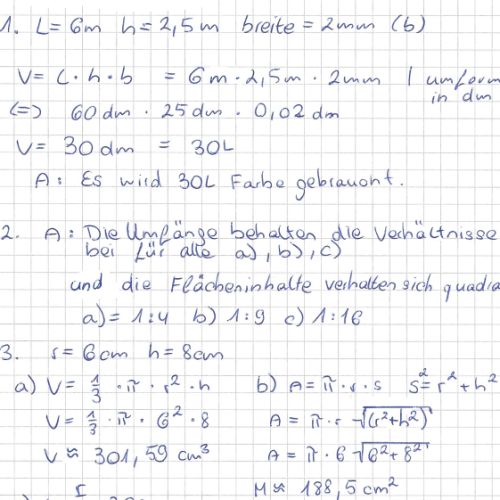 1. L= 6m h= 2,5m breite = 2mm (b)
V= L·h·b = 6m·2,5m·2mm | umform
in dm
(=) 60 dm · 25 dm · 0,02 dm
V= 30 dm = 30L
A: Es wird 30L Farbe gebraucht.
2. A: Die Umfänge behalten die Verhältnisse
bei für alle a), b), c)
und die Flächeninhalte verhalten sich quadra
a) = 1:4 b) 1:9 c) 1:16
3. r = 6cm h = 8cm
a) V = 1/3 · π · r² · h b) A = π · r · s s² = r² + h²
V = 1/3 · π · 6² · 8 A = π · r √(r²+h²)
V ≈ 301,59 cm³ A = π · 6 √6²+8²
M ≈ 188,5 cm²